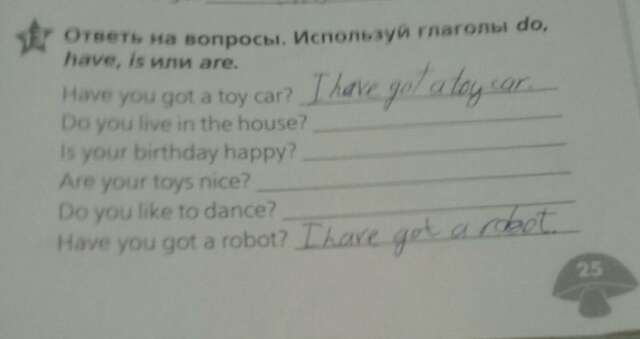 Ответь на вопросы. Используй глаголы do,
have, is или are.
Have you got a toy car? I have got a toy car.
Do you live in the house?
Is your birthday happy?
Are your toys nice?
Do you like to dance?
Have you got a robot? I have got a robot.
25